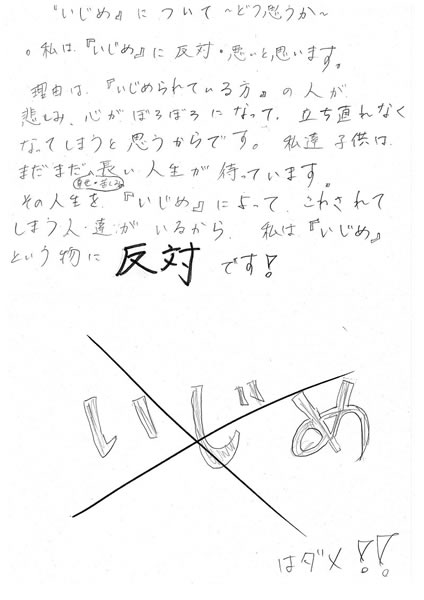 『いじめ』について ~どう思うか~
○私は『いじめ』に反対・悪いと思います。
理由は、『いじめられている方』の人が
悲しみ、心がぼろぼろになって、立ち直れなく
なってしまうと思うからです。私達子供は、
まだまだ長い人生が待っています。
その人生を『いじめ』によって、こわされて
しまう人・達がいるから、私は『いじめ』
という物に反対です!
いじめ
はダメ!!